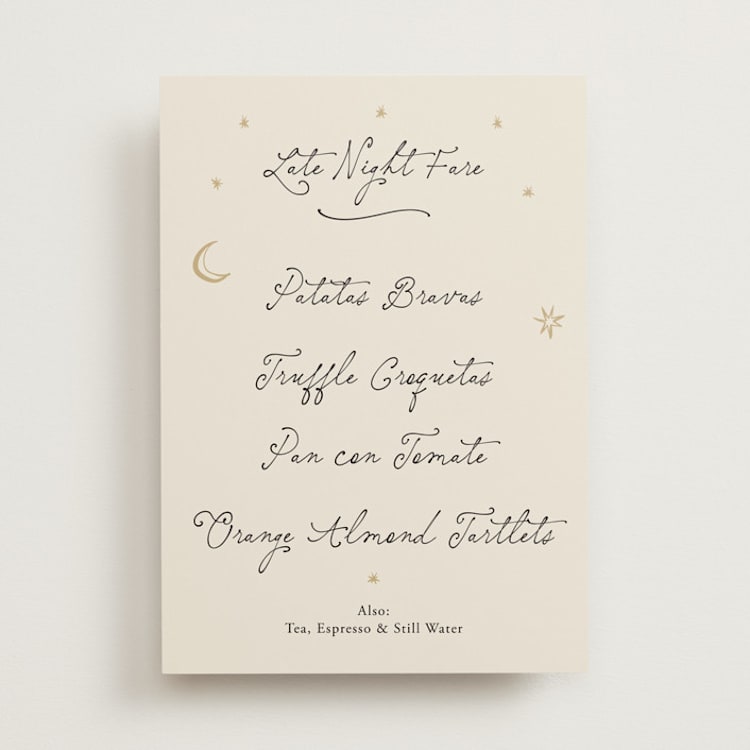 Late Night Fare
Patatas Bravas
Truffle Croquetas
Pan con Tomate
Orange Almond Tartlets
Also:
Tea, Espresso & Still Water